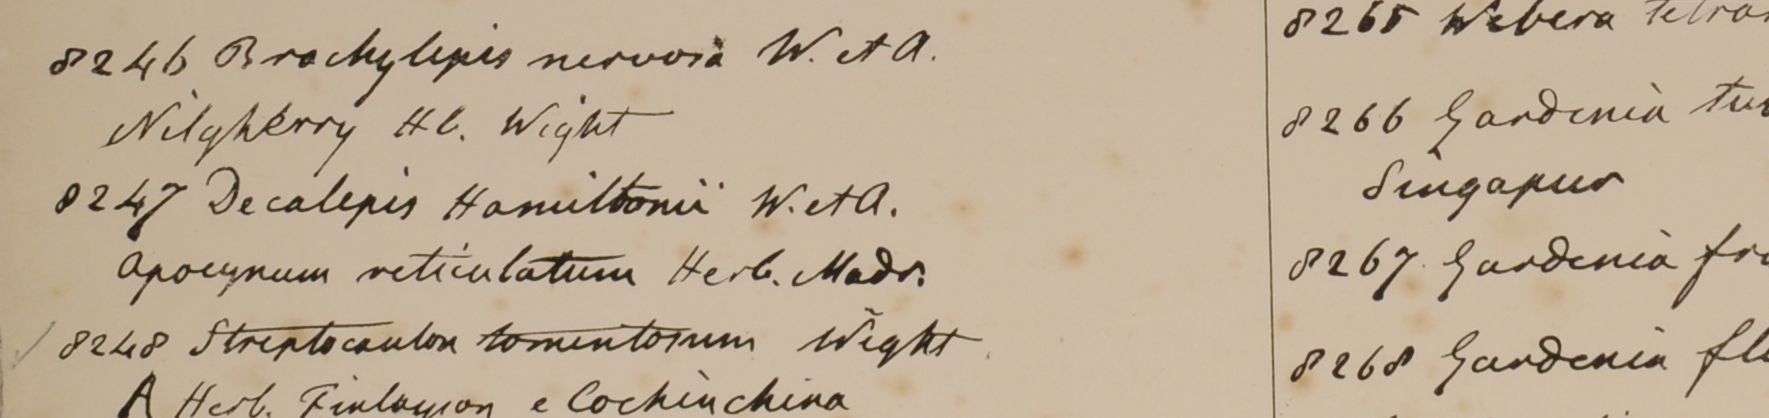 8246 Brachylepis nervosa W. et A.
Nilgherry Hb. Wight
8247 Decalepis Hamiltonii W. et A.
Apocynum reticulatum Herb. Madr.
8248 Streptocaulon tomentosum Wight
A Herb. Finlayson e Cochinchina
8265 Webera
8266 Gardenia
Singapur
8267 Gardenia
8268 Gardenia